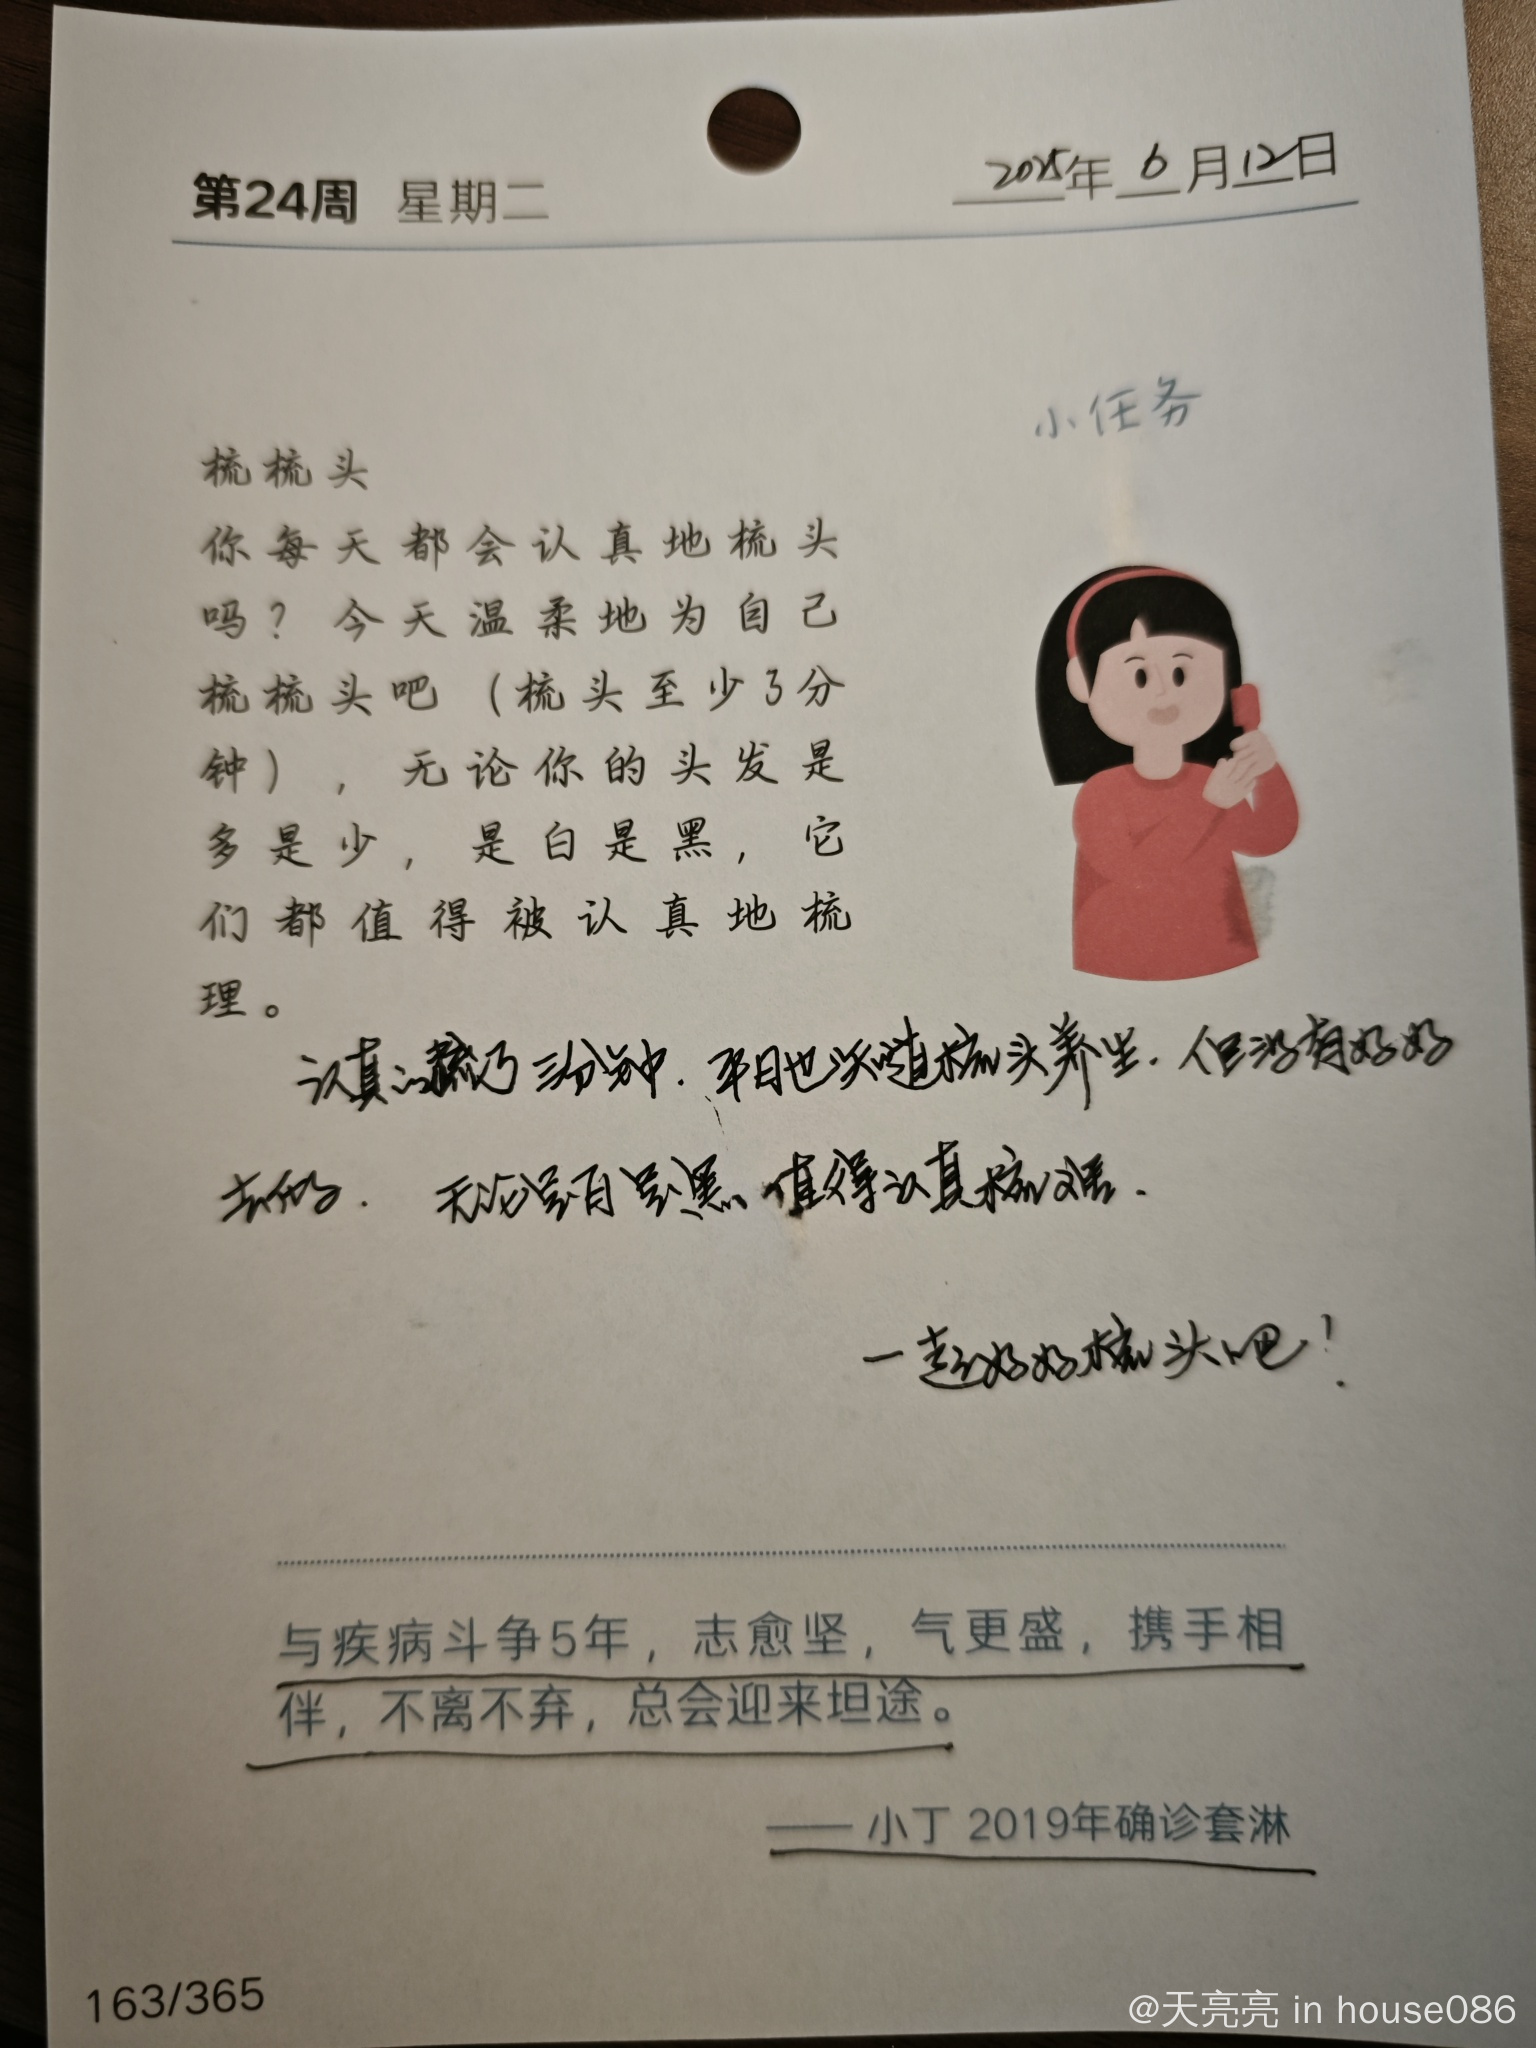 第24周 星期二
2025年 6 月 12 日
小任务
梳梳头
你每天都会认真地梳头
吗？今天温柔地为自己
梳梳头吧（梳头至少3分
钟），无论你的头发是
多是少，是白是黑，它
们都值得被认真地梳
理。
认真的梳了三分钟. 平日也 梳头养生. 但没有好好
去做. 无论是白是黑、值得认真梳理.
一起好好梳头吧！
与疾病斗争5年，志愈坚，气更盛，携手相
伴，不离不弃，总会迎来坦途。
—— 小丁 2019年确诊套淋
163/365
@天亮亮 in house086